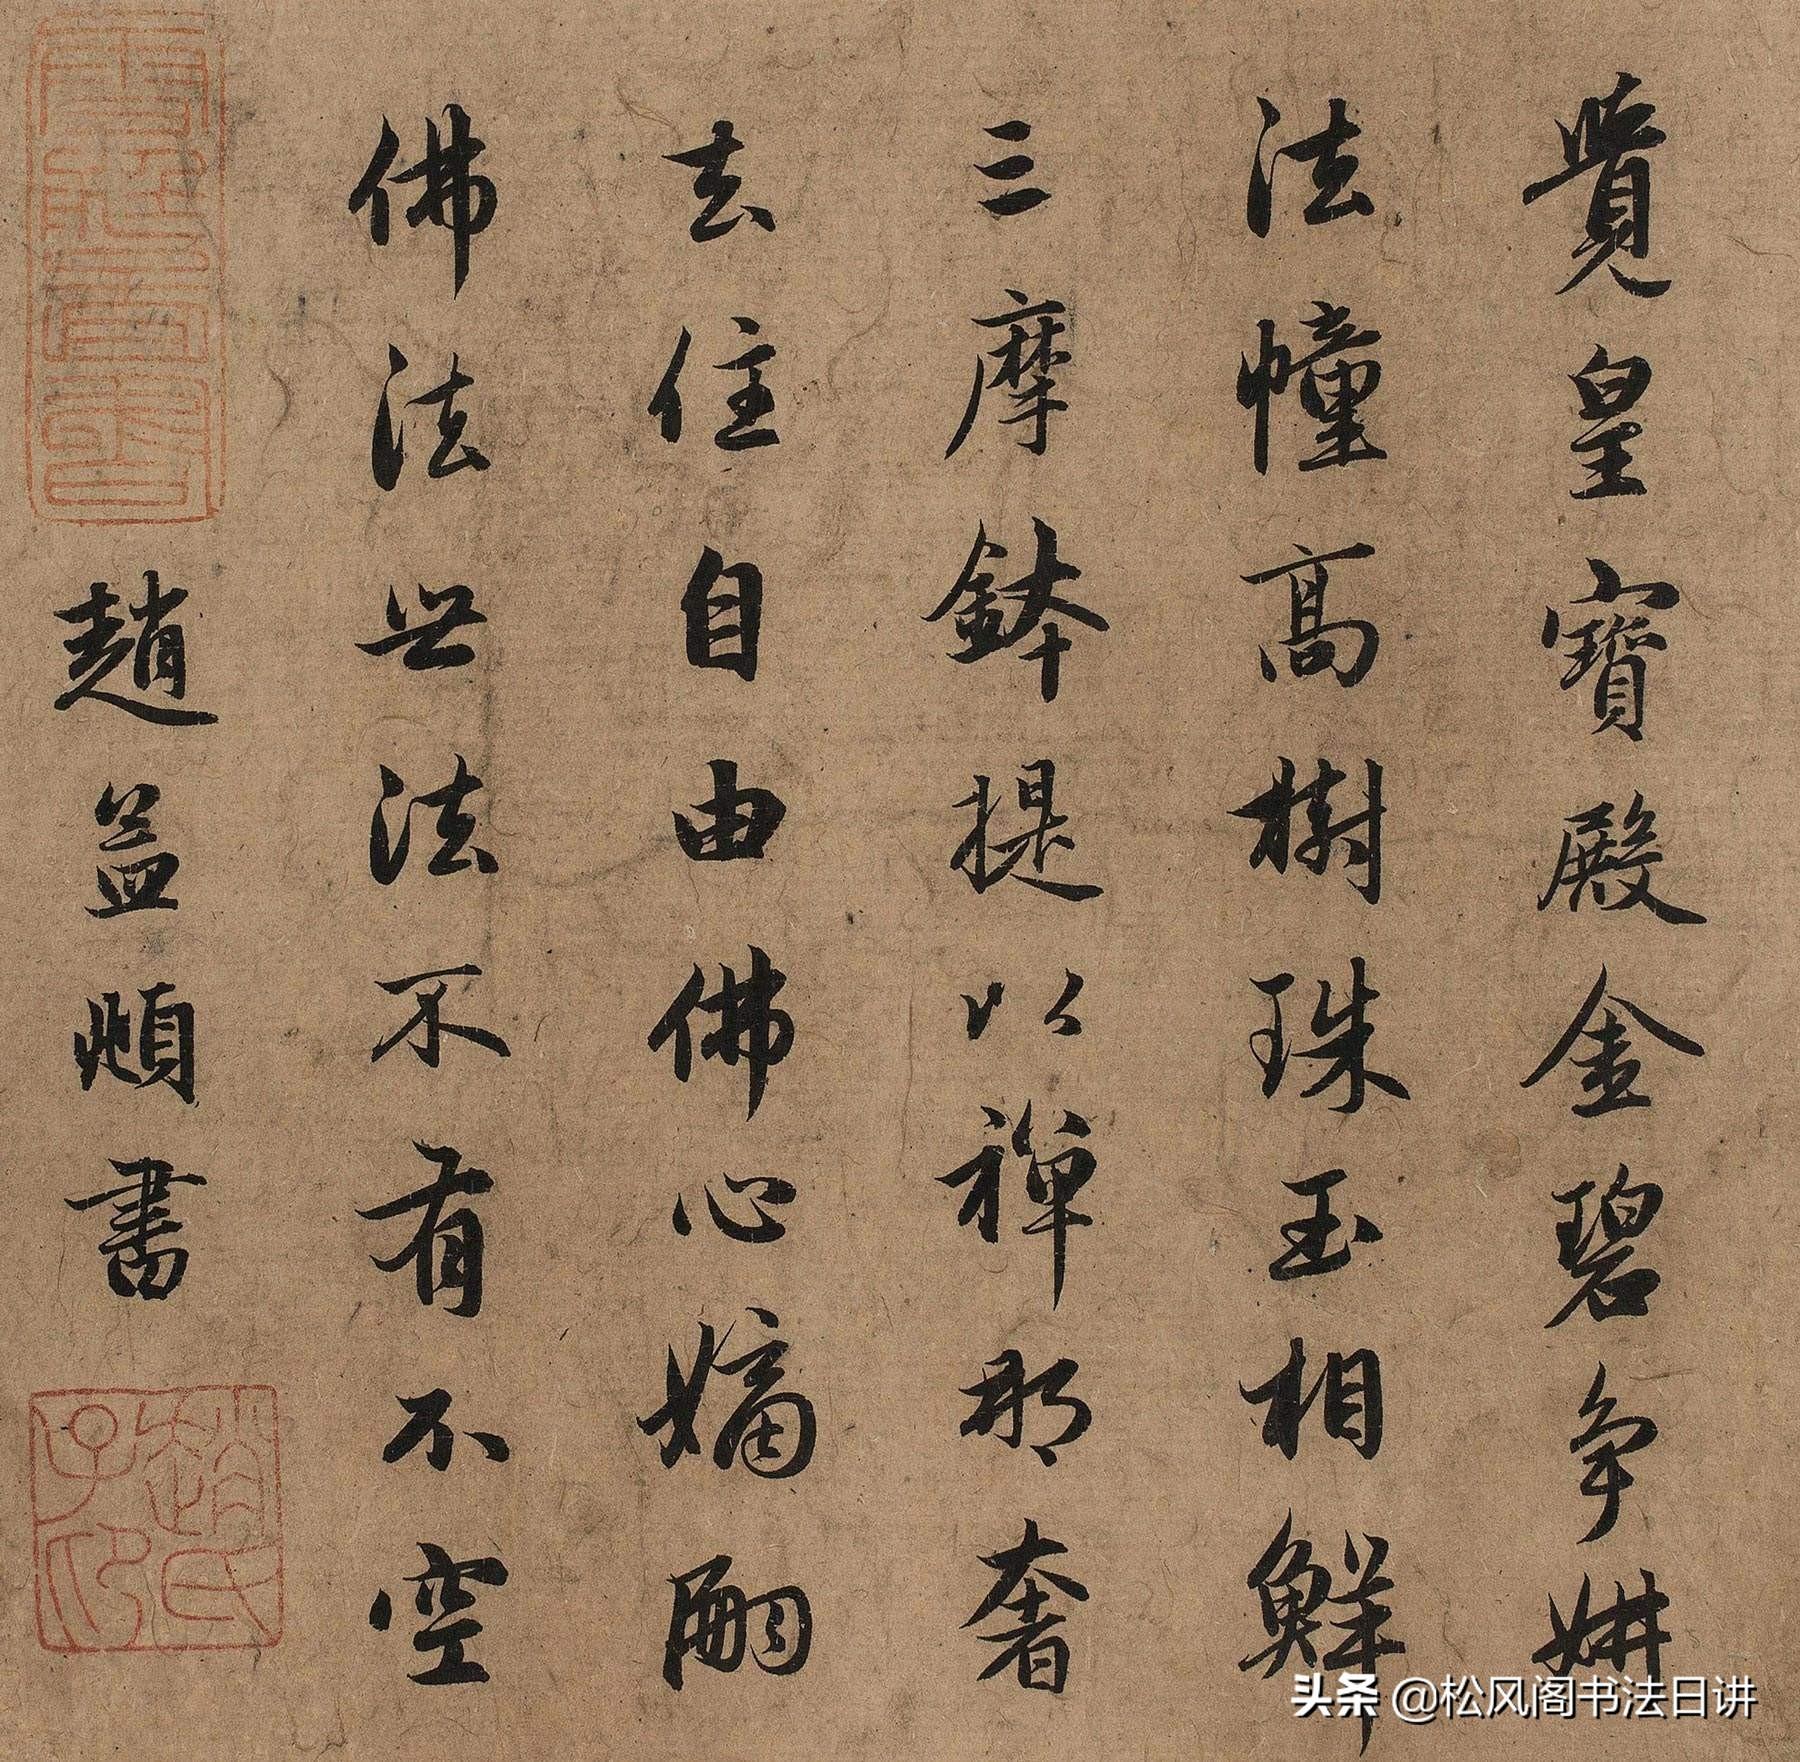 覺皇寶殿金碧爭妍
法幢高樹珠玉相鮮
三摩鉢提以禪那奢
去住自由佛心嫡嗣
佛法世法不有不空
趙孟頫書
趙氏子印
头条 @松风阁书法日讲